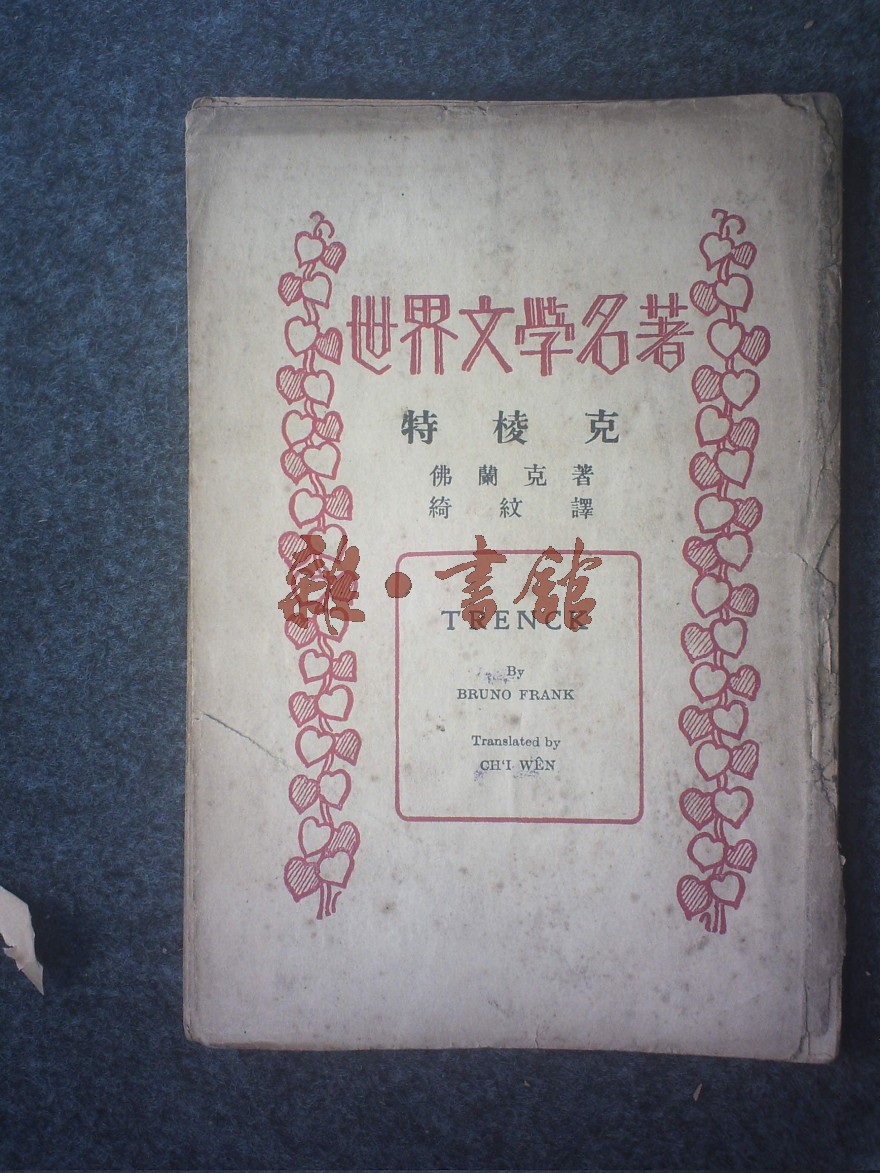 世界文學名著
特棱克
佛蘭克著
綺紋譯
雜·書館
TRENCK
By
BRUNO FRANK
Translated by
CH'I WÊN